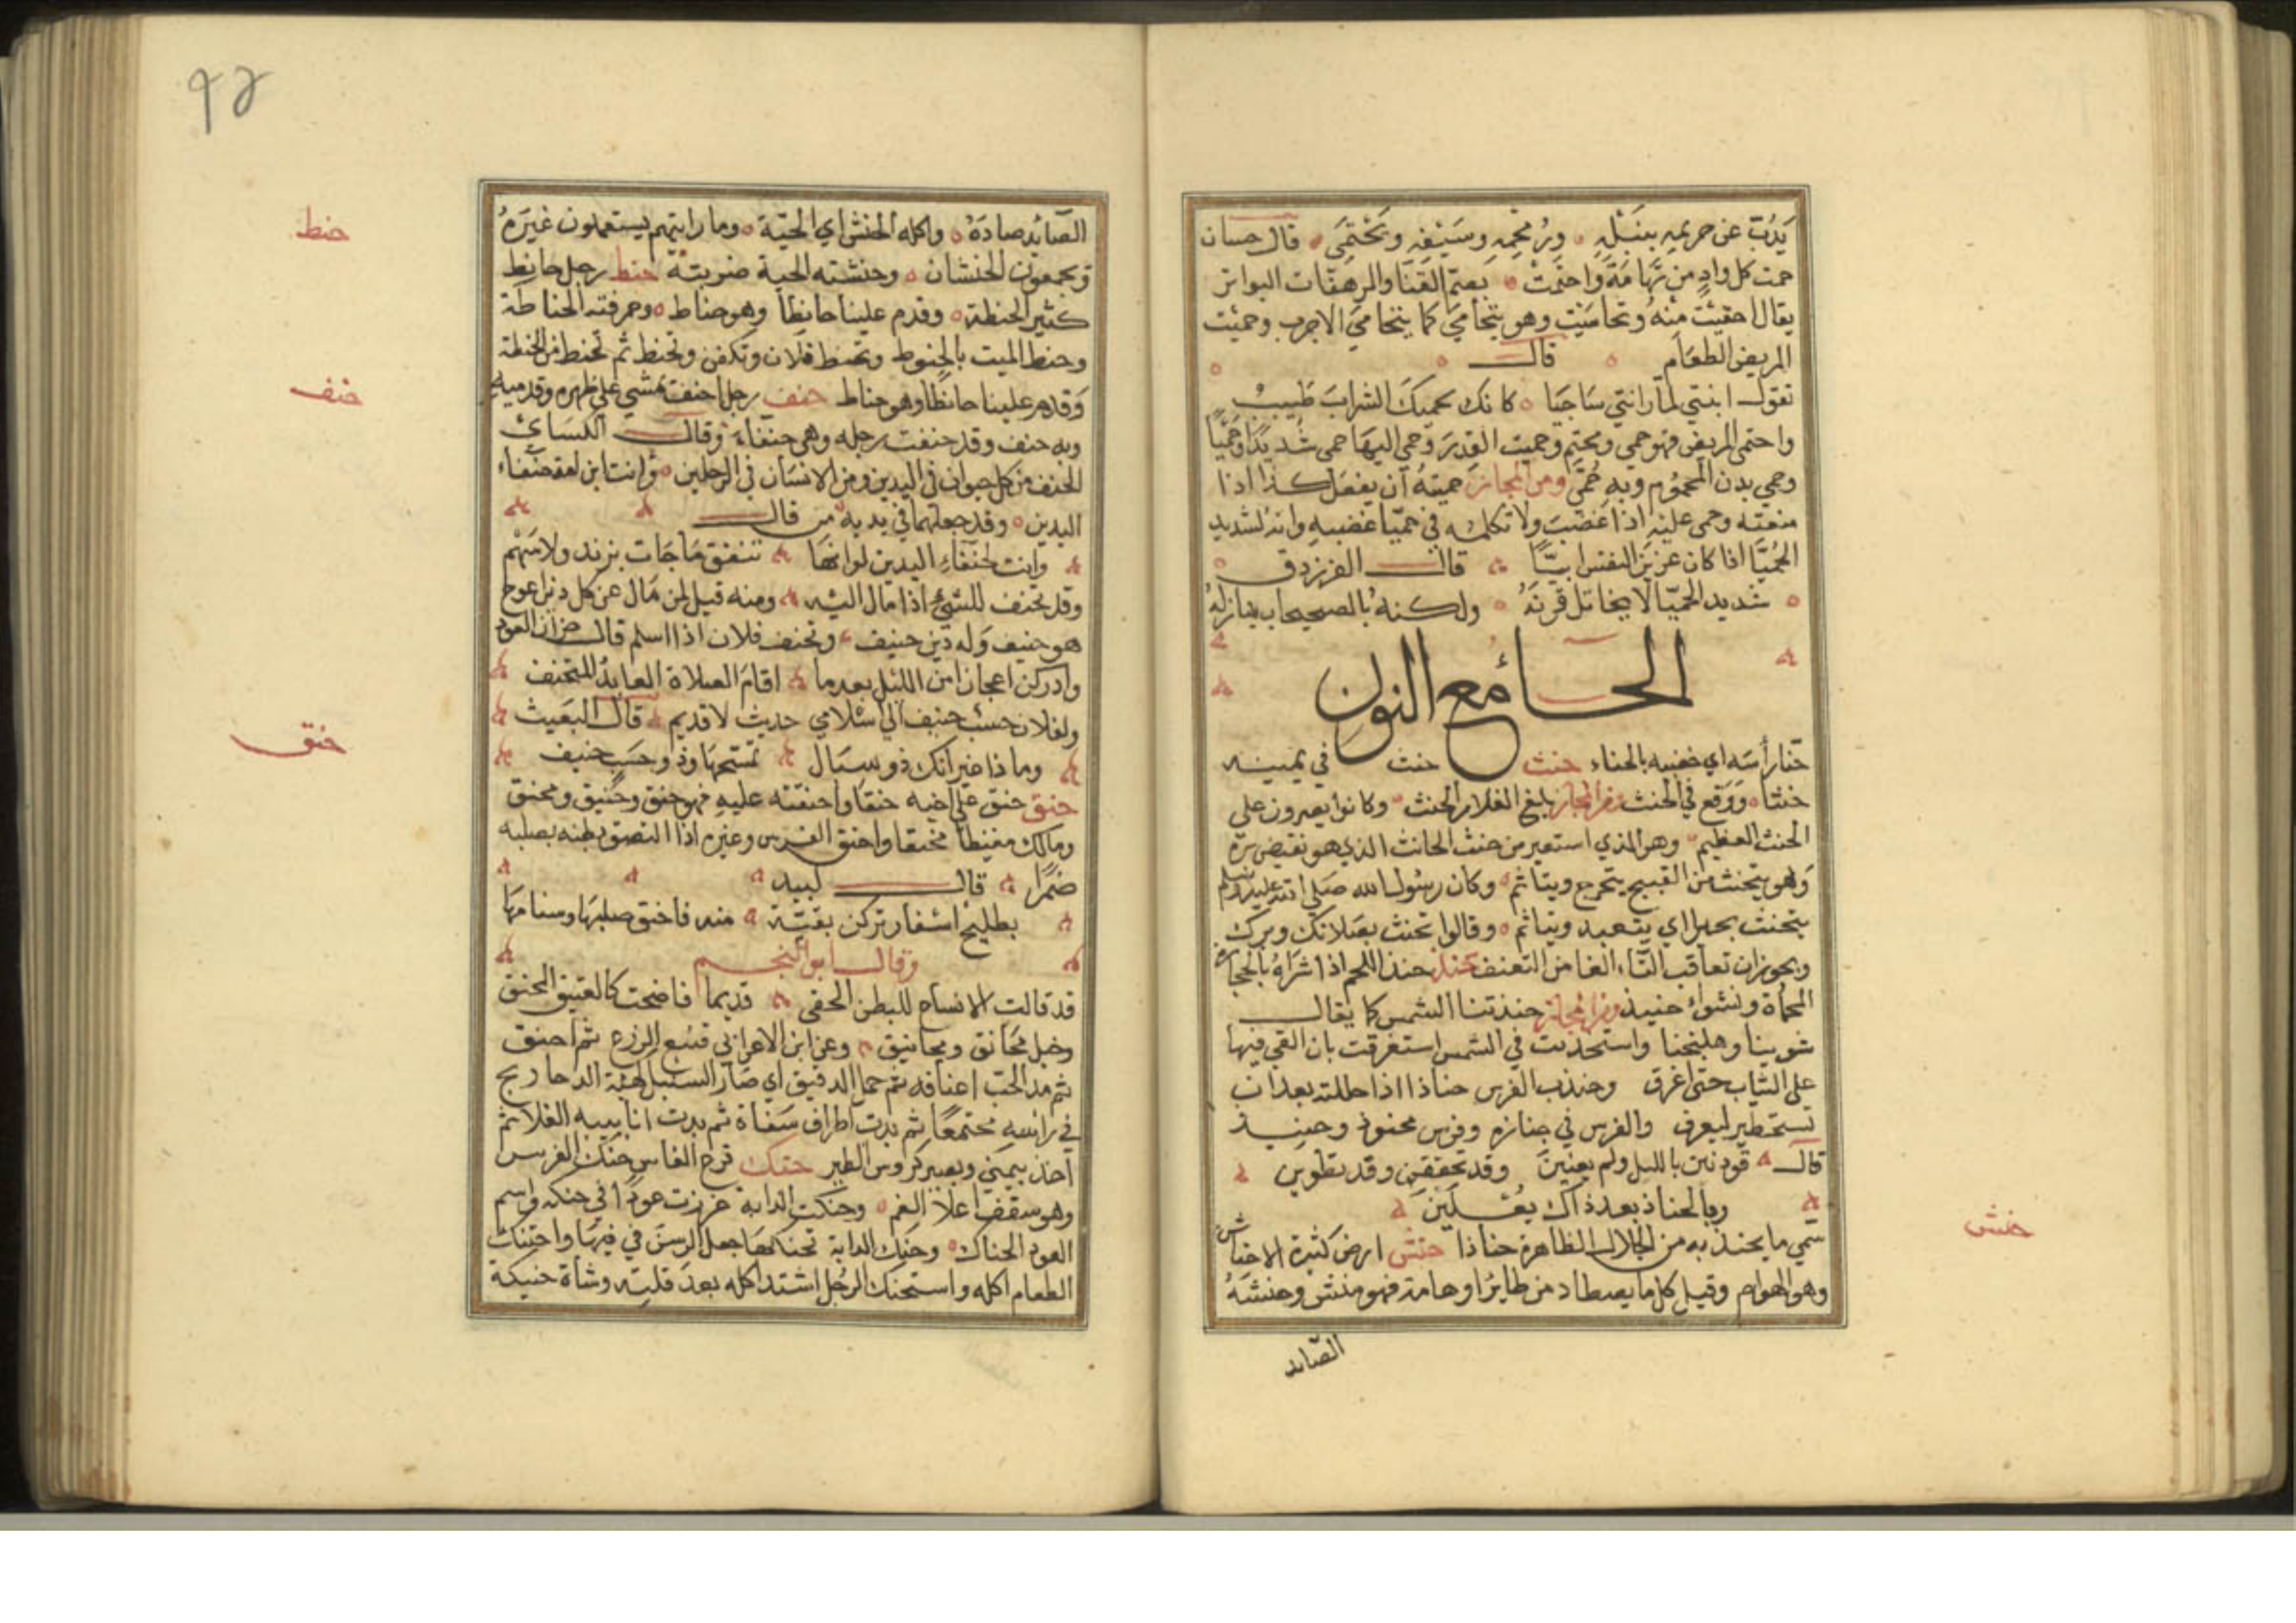 يذب عن حريمه بنبله ورمحه وسيفه ويحتمي قال حسان
حمت كل واد من تهامة واحتمت بصم القنا والمرهفات البواتر
يقال احتميت منه وتحاميت وهو يتحامى كما يتحامى الاجرب وحميت
المريض الطعام قال
تقول ابنتي لما راتني شاحبا كانك يحميك الشراب طبيب
واحتمى المريض فهو حمي ومحتم وحميت القدر وحمي اليها حمى شديدا وحميا
وحمي بدن المحموم وبه حمى ومن المجاز حميته ان يفعل كذا اذا
منعته وحمى عليه اذا غضب ولا تكلمه في حميا غضبه وانه لشديد
الحميا اذا كان عزيز النفس ابيا قال الفرزدق
شديد الحميا لا يخاتل قرنه ولكنه بالصحيحان ينازله
الحاء مع النون
حنا رأسه اي خضبه بالحناء حنث حنث في يمينه
حنثا ووقع في الحنث ومن المجاز بلغ الغلام الحنث وكانوا يصرون على
الحنث العظيم وهو الذي استعير من حنث الحانث الذي هو نقيض بره
وهو يتحنث من القبيح يتحرج ويتاثم وكان رسول الله صلى الله عليه وسلم
يتحنث بحرا اي يتعبد ويتاثم وقالوا تحنث بصلاتك وبرك
ويجوز ان تعاقب الثاء الفا من التحنف حنذ حنذ اللحم اذا شراه بالحجارة
المحماة وشواء حنيذ ومن المجاز حنذتنا الشمس كما يقال
شوينا وطبخنا واستحنذت في الشمس استعرقت بان القي فيها
على الثياب حتى اعرق وحنذت الفرس حناذا اذا جللته بعد ان
تستحضره ليعرق والفرس في حنازه وفرس محنوذ وحنيذ
قال قودنين بالليل ولم يعنين وقد تحققن وقد تطوين
وبالحناذ بعد ذاك يعلين
سمي ما يحنذ به من الجلال الظاهرة حناذا حنش ارض كثيرة الاحناش
وهو الهوام وقيل كل ما يصطاد من طاير او هامة فهو حنش وحنشه
الصائد
حنش
٩٢
الصائد صاده واكله الحنش اي الحية وما رايتهم يستعملون غيره
ويجمعون الحنشان وحنشته الحية ضربته حنط رجل حانط
كثير الحنطة وقدم علينا حانطا وهو حناط وحرفته الحناطة
وحنط الميت بالحنوط وتحنط فلان وتكفن وتحنط ثم تحنط من الحنطة
وقدم علينا حانطا وهو حناط حنف رجل احنف يمشي على ظهره قدميه
وبه حنف وقد حنفت رجله وهي حنفاء وقال الكسائي
الحنف من كل حيوان في اليدين ومن الانسان في الرجلين وانت ابن امة حنفاء
اليدين وقد جعلهما في يديه من قال
وانت لحنفاء اليدين لو انها تنفق ما جات بزند ولا سهم
وقد تحنف للشيء اذا مال اليه ومنه قيل لمن مال عن كل دين اعوج
هو حنيف وله دين حنيف وتحنف فلان اذا اسلم قال جران العود
وادركن اعجازا من الليل بعدما اقام الصلاة العابد المتحنف
ولفلان حسب حنيف اي اسلامي حديث لا قديم قال البعيث
وما ذا غير انك ذو سبال تمسحها وذو حسب حنيف
حنق حنق على اخيه حنقا واحنقته عليه فهو حنق وحنيق ومحنق
ومالك مغيظا محنقا واحنق الفرس وغيره اذا التصق بطنه بصلبه
ضمرا قال لبيد
بطليح اسفار تركن بقية منه فاحنق صلبها وسنامها
وقال ابو النجم
قد قالت الانساع للبطن الحقي قديما فاضحت كالفنيق المحنق
وخيل محانق ومحانيق وعن ابن الاعرابي قنبع الزرع ثم احنق
ثم مد الحب اعناقه ثم حمل الدقيق اي صار السنبل كهيئة الدحاريج
في راسه مجتمعا ثم بدت اطراف سفاه ثم بدت انابيبه
وبصير كروس الطير حنك قرع الفاس حنك الفرس
وهو سقف اعلا الفم وحنكت الدابة غرزت عودا في حنكه واسم
العود الحناك وحنك الدابة تحنكها جعل الرسن في فيها واحتنك
الطعام اكله واستحنك الرجل اشتد اكله بعد قلته وشاة حنيكة
حنط
حنف
حنق